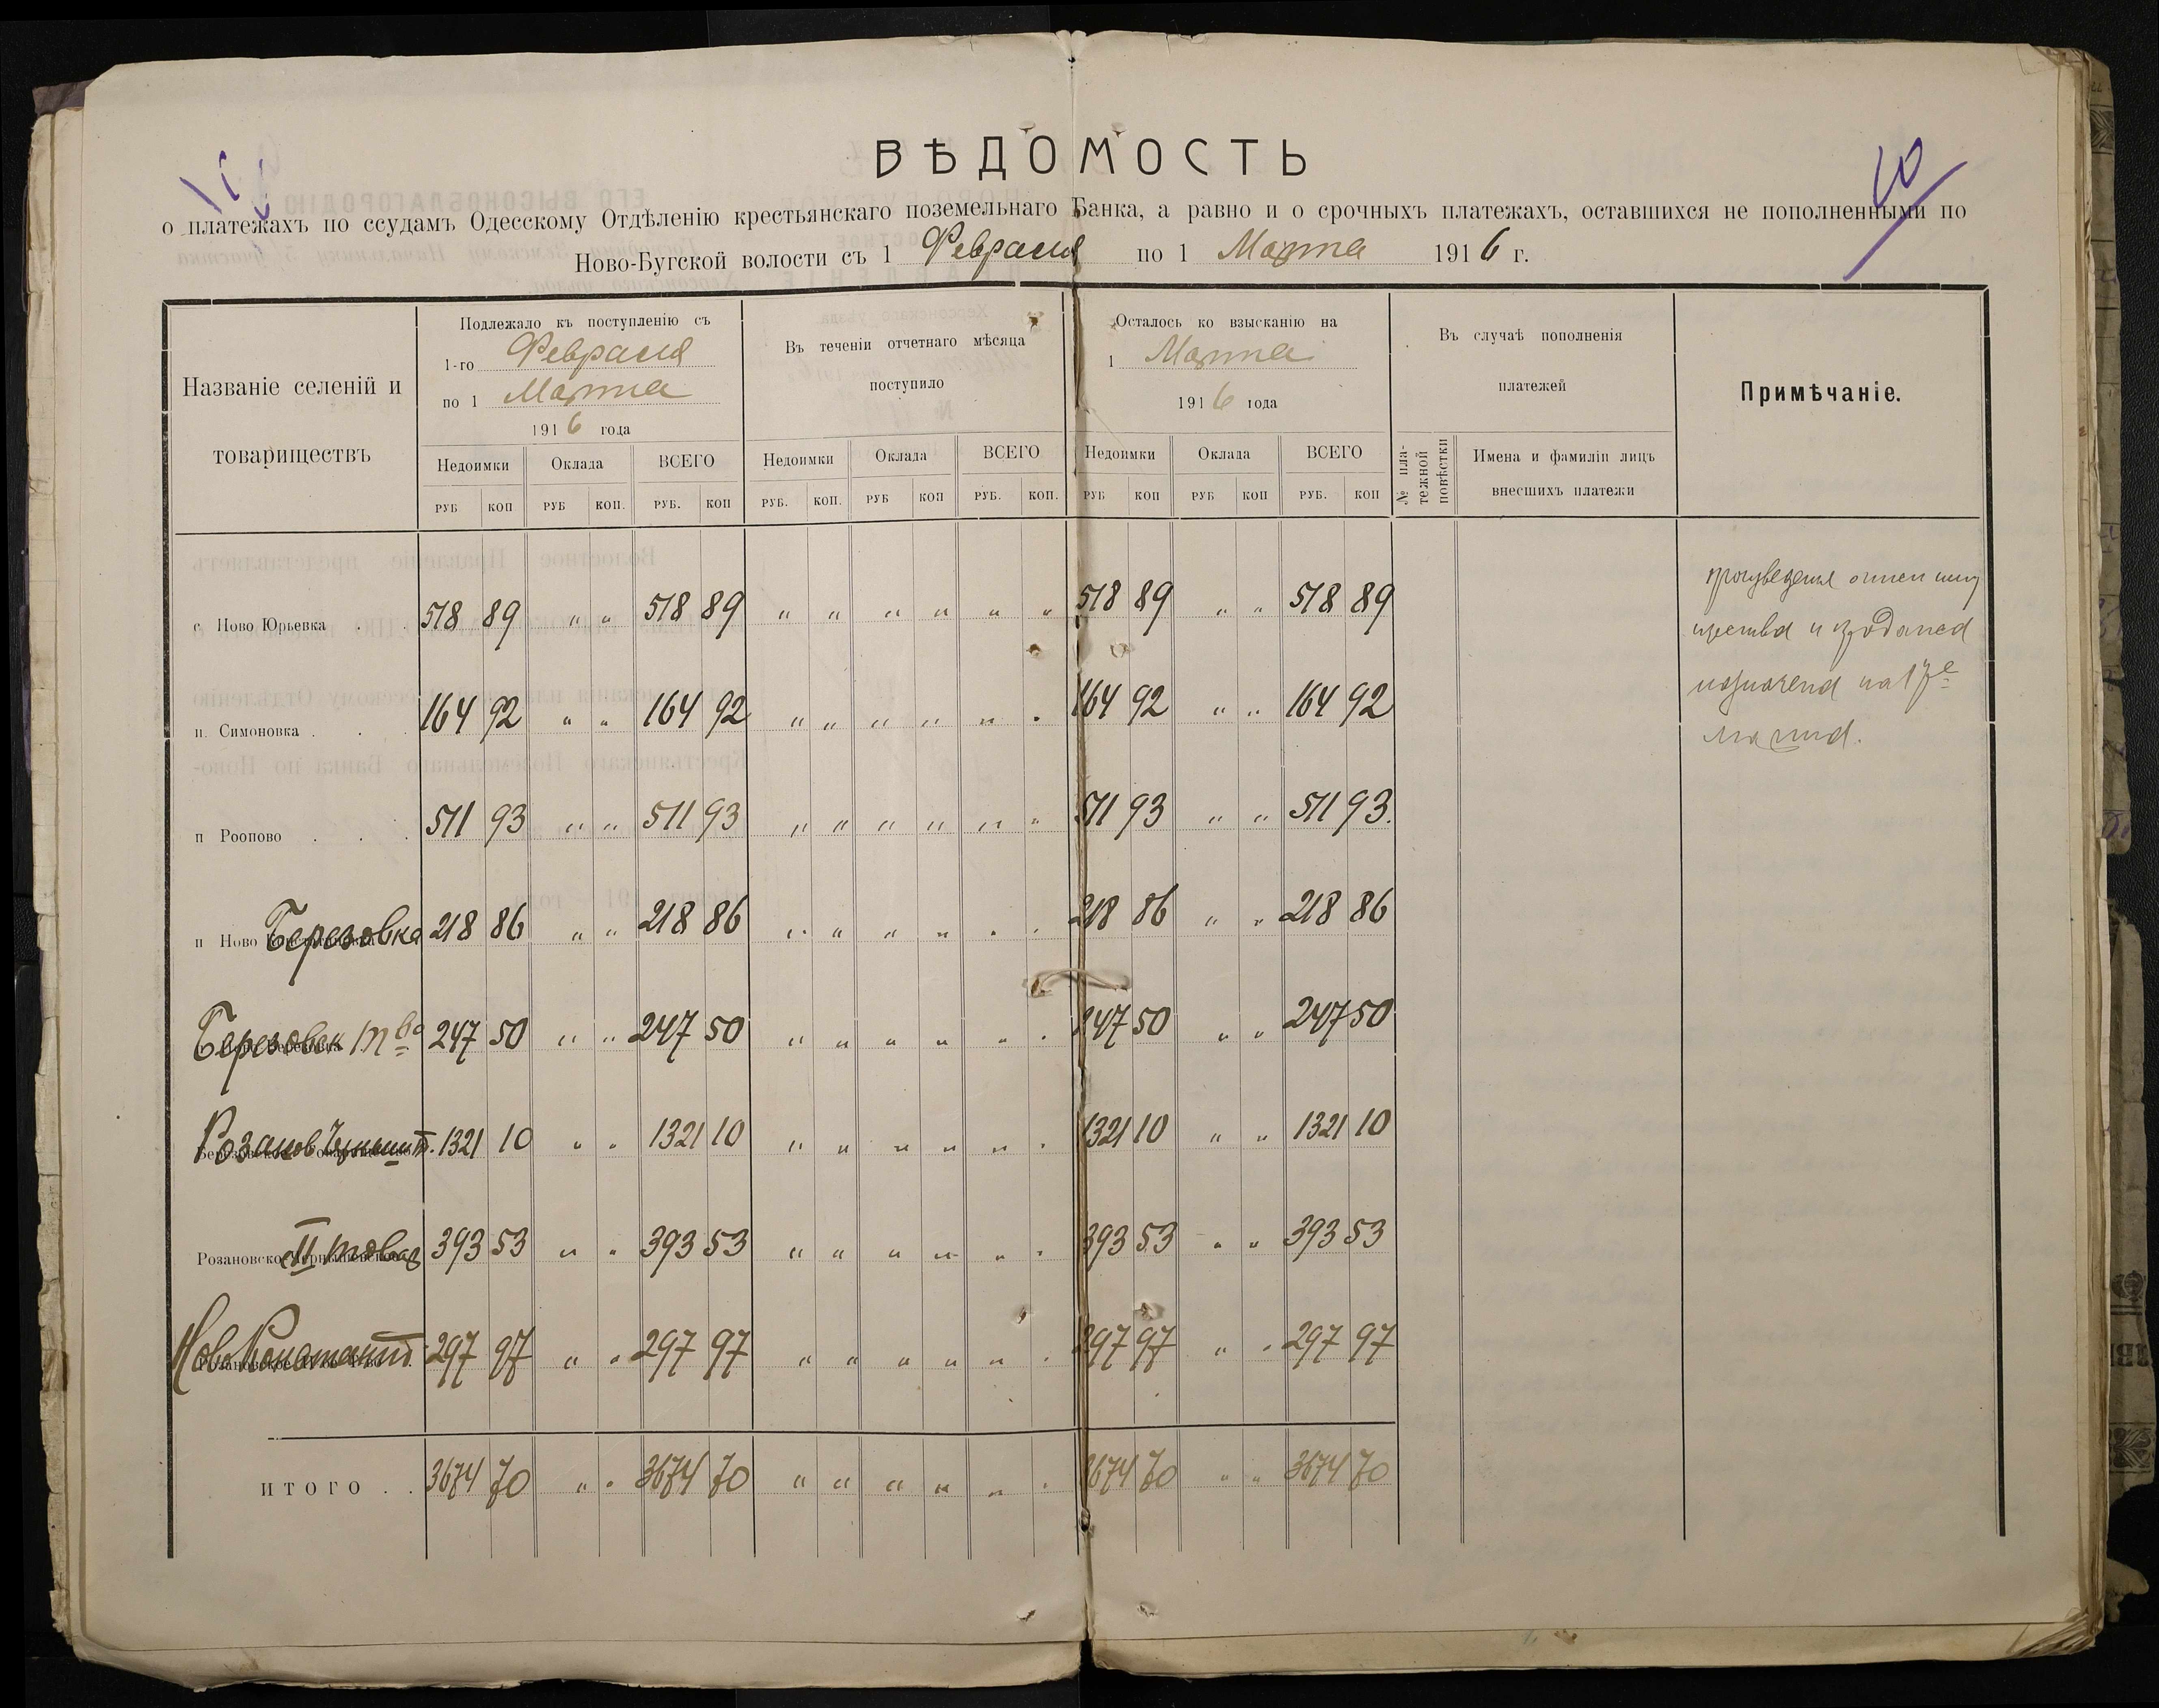 10
ВѢДОМОСТЬ
о платежахъ по ссудамъ Одесскому Отдѣленію крестьянскаго поземельнаго Банка, а равно и о срочныхъ платежахъ, оставшихся не пополненными по
Ново-Бугской волости съ 1 Февраля по 1 Марта 1916 г.
Названіе селеній и
товариществъ
Подлежало къ поступленію съ
1-го Февраля
по 1 Марта
1916 года
Въ теченіи отчетнаго мѣсяца
поступило
Осталось ко взысканію на
1 Марта
1916 года
Въ случаѣ пополненія
платежей
Примѣчаніе.
Недоимки Оклада ВСЕГО Недоимки Оклада ВСЕГО Недоимки Оклада ВСЕГО
№ пла-
тежной
повѣстки
Имена и фамиліи лицъ
внесшихъ платежи
РУБ КОП РУБ КОП. РУБ. КОП РУБ. КОП. РУБ КОП РУБ. КОП. РУБ КОП РУБ КОП РУБ. КОП
с. Ново Юрьевка . . 518 89 " " 518 89 " " " " " " 518 89 " " 518 89
п. Симоновка . . . 164 92 " " 164 92 " " " " " " 164 92 " " 164 92
п Роопово . . . 511 93 " " 511 93 " " " " " " 511 93 " " 511 93.
п Ново Березовка 218 86 " " 218 86 " " " " " " 218 86 " " 218 86
Березовск тво 247 50 " " 247 50 " " " " " " 247 50 " " 247 50
Розанов 1321 10 " " 1321 10 " " " " " " 1321 10 " " 1321 10
Розановско-Чернышевское II товар 393 53 " " 393 53 " " " " " " 393 53 " " 393 53
Ново Константи 297 97 " " 297 97 " " " " " " 297 97 " " 297 97
ИТОГО . . 3674 70 " " 3674 70 " " " " " " 3674 70 " " 3674 70
произведена опись иму
щества и продажа
назначена на 17е
марта.